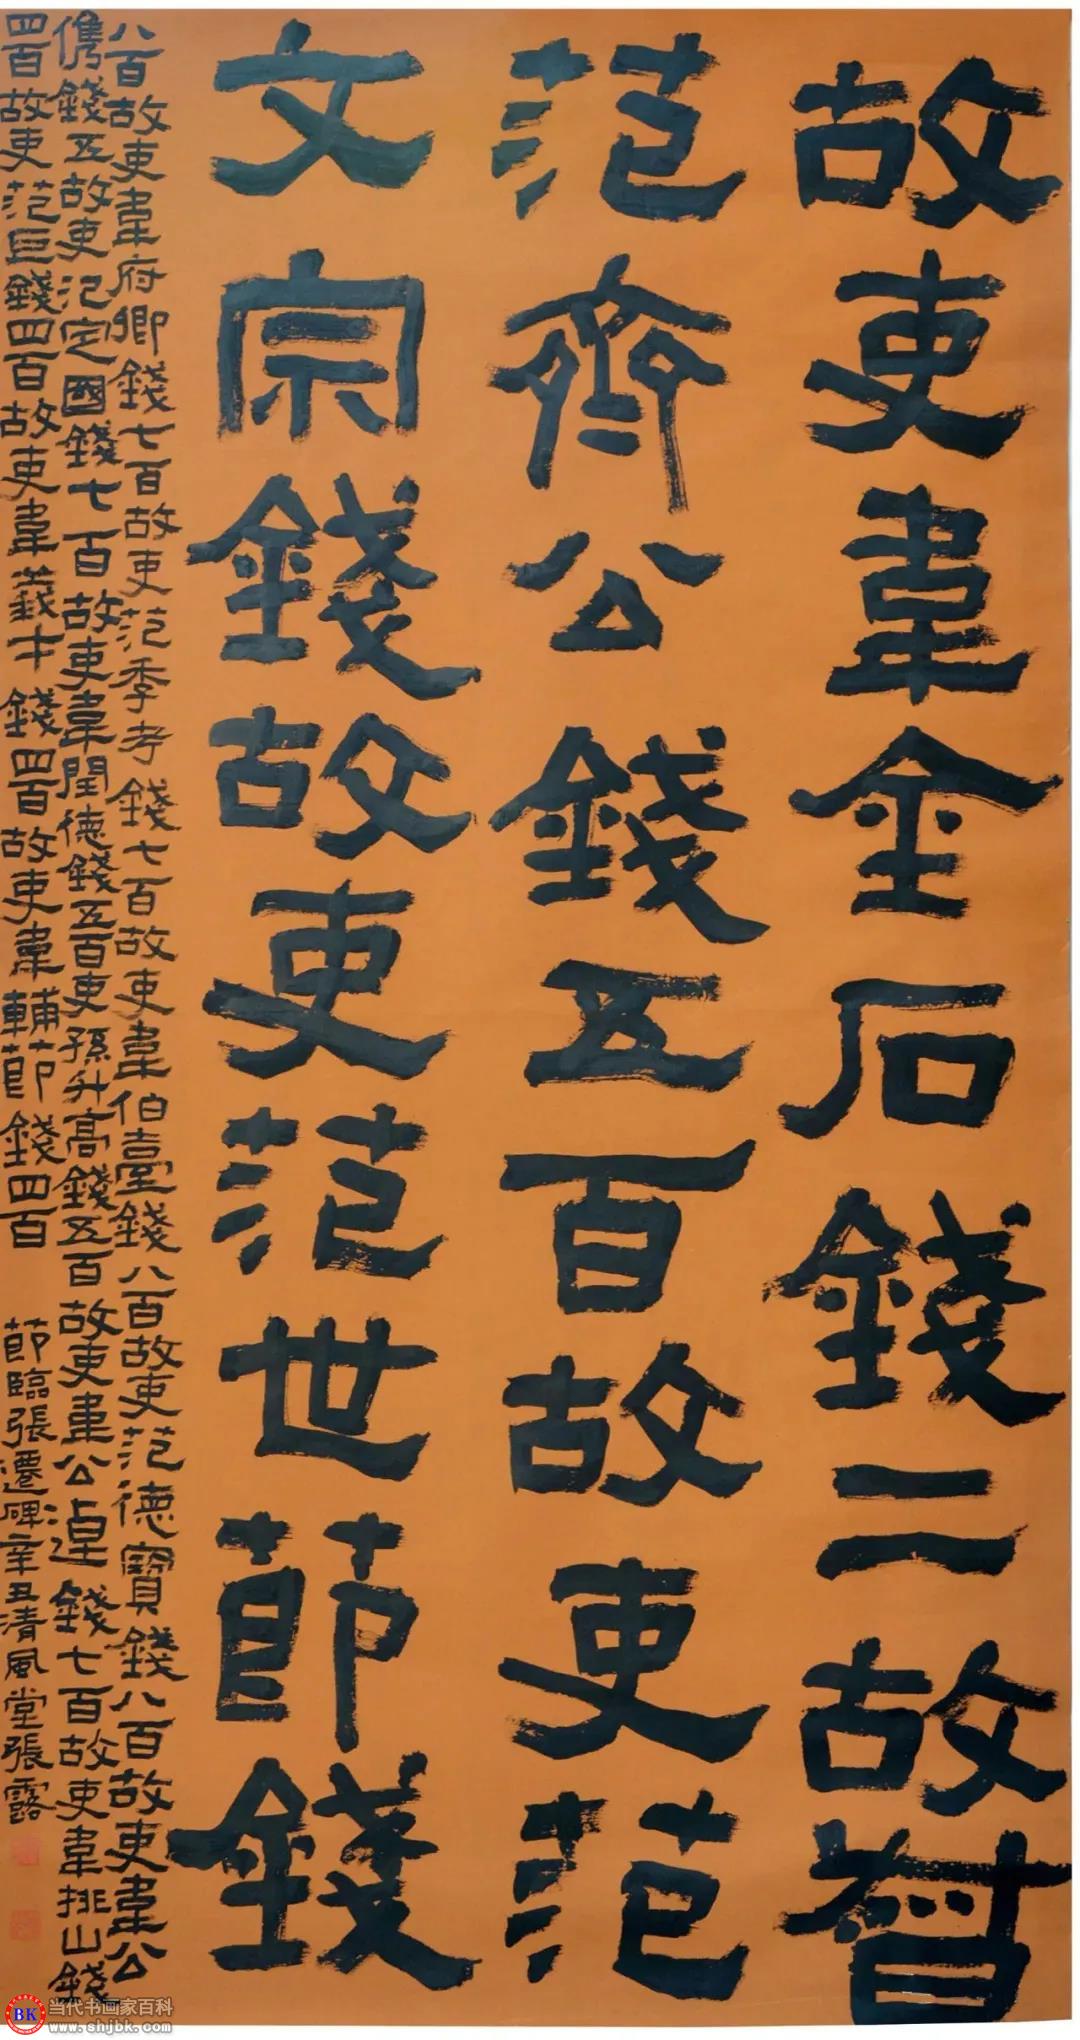 故吏韋金石錢二故督
范齊公錢五百故吏范
文宗錢故吏范世節錢
八百故吏韋府卿錢七百故吏范季考錢七百故吏韋伯臺錢八百故吏范德寶錢八百故吏韋公
儁錢五故吏氾定國錢七百故吏韋閏德錢五百吏孫升高錢五百故吏韋公逴錢七百故吏韋排山錢
四百故吏范巨錢四百故吏韋義才錢四百故吏韋輔節錢四百 節臨張遷碑辛丑清風堂張露
BK 当代书画家百科
www.shjbk.com